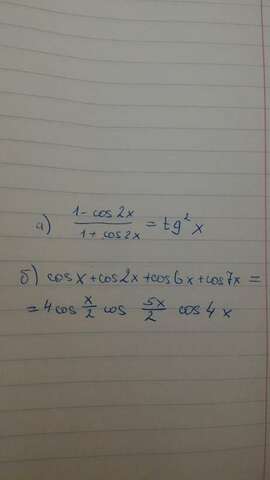 а) (1 - cos2x)/(1 + cos2x) = tg² x
б) cosx + cos2x + cos6x + cos7x =
= 4cos x/2 cos 5x/2 cos 4x